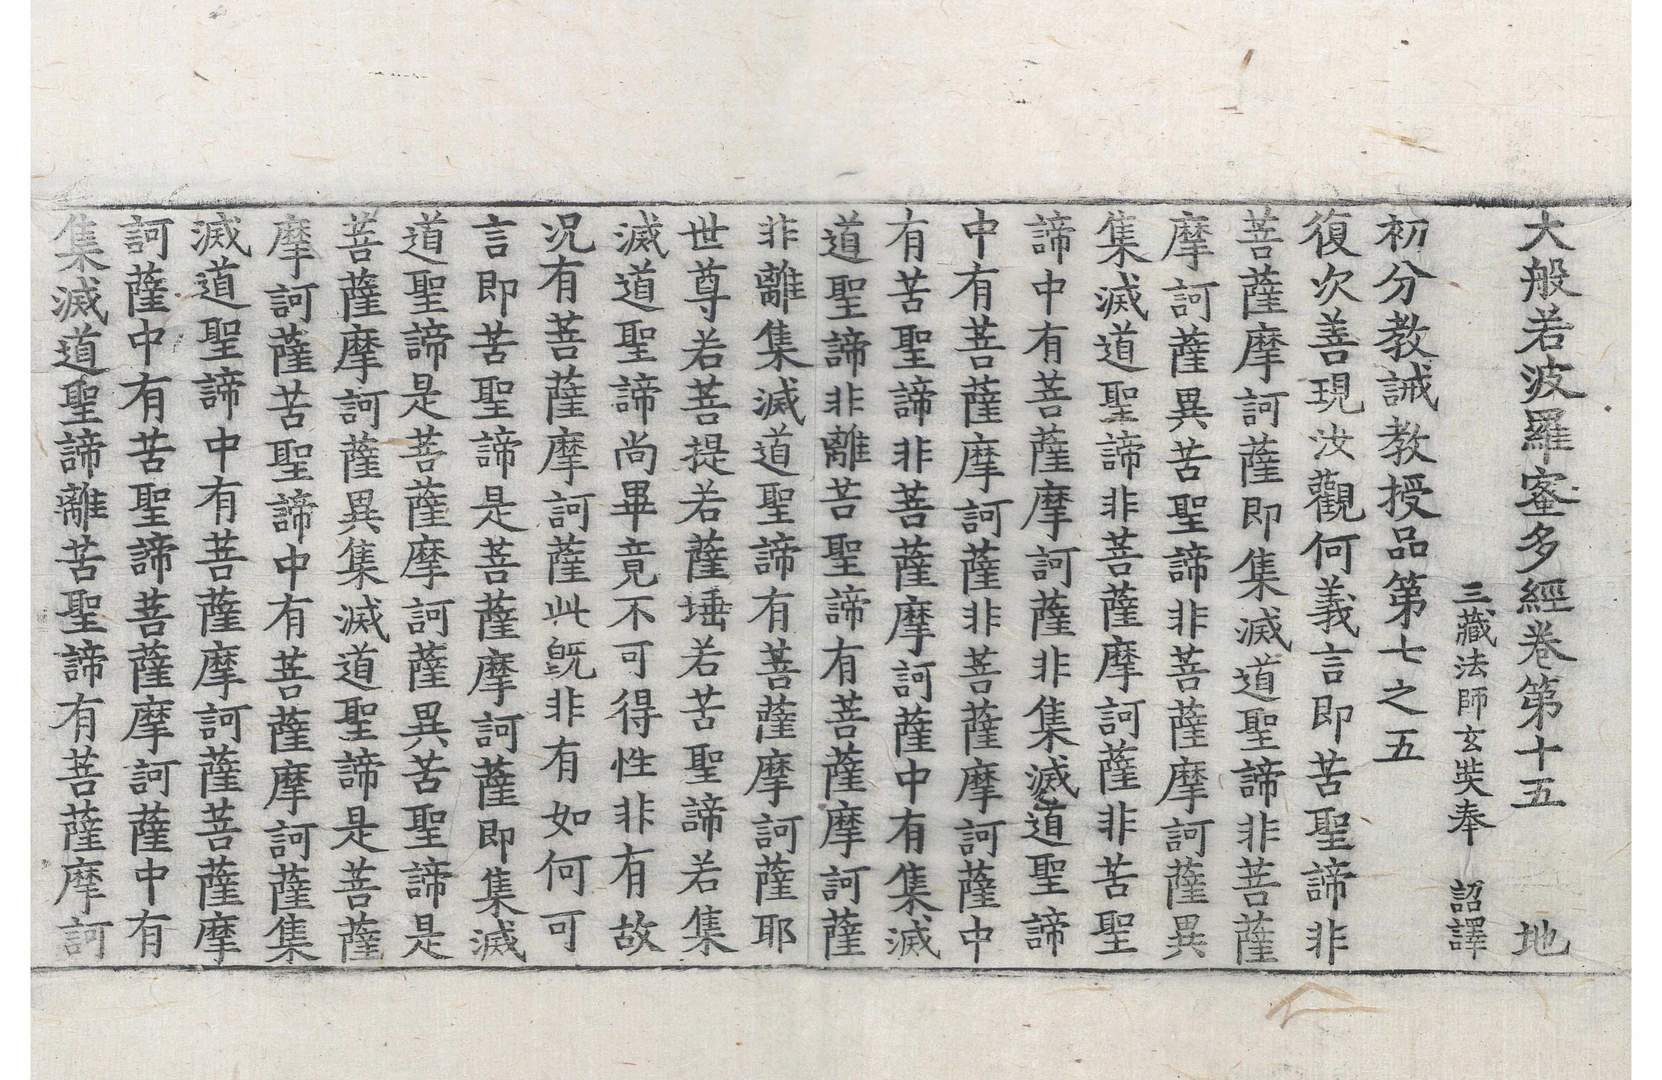 大般若波羅蜜多經卷第十五 地
三藏法師玄奘奉 詔譯
初分教誡教授品第七之五
復次善現汝觀何義言即苦聖諦非
菩薩摩訶薩即集滅道聖諦非菩薩
摩訶薩異苦聖諦非菩薩摩訶薩異
集滅道聖諦非菩薩摩訶薩非苦聖
諦中有菩薩摩訶薩非集滅道聖諦
中有菩薩摩訶薩非菩薩摩訶薩中
有苦聖諦非菩薩摩訶薩中有集滅
道聖諦非離苦聖諦有菩薩摩訶薩
非離集滅道聖諦有菩薩摩訶薩耶
世尊若菩提若薩埵若苦聖諦若集
滅道聖諦尚畢竟不可得性非有故
況有菩薩摩訶薩此既非有如何可
言即苦聖諦是菩薩摩訶薩即集滅
道聖諦是菩薩摩訶薩異苦聖諦是
菩薩摩訶薩異集滅道聖諦是菩薩
摩訶薩苦聖諦中有菩薩摩訶薩集
滅道聖諦中有菩薩摩訶薩菩薩摩
訶薩中有苦聖諦菩薩摩訶薩中有
集滅道聖諦離苦聖諦有菩薩摩訶